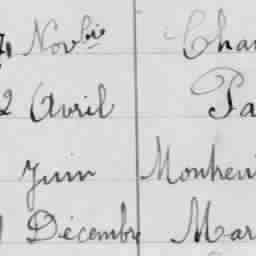 Novbre Char
2 Avril Pa
Juin Monheu
Décembre Mar